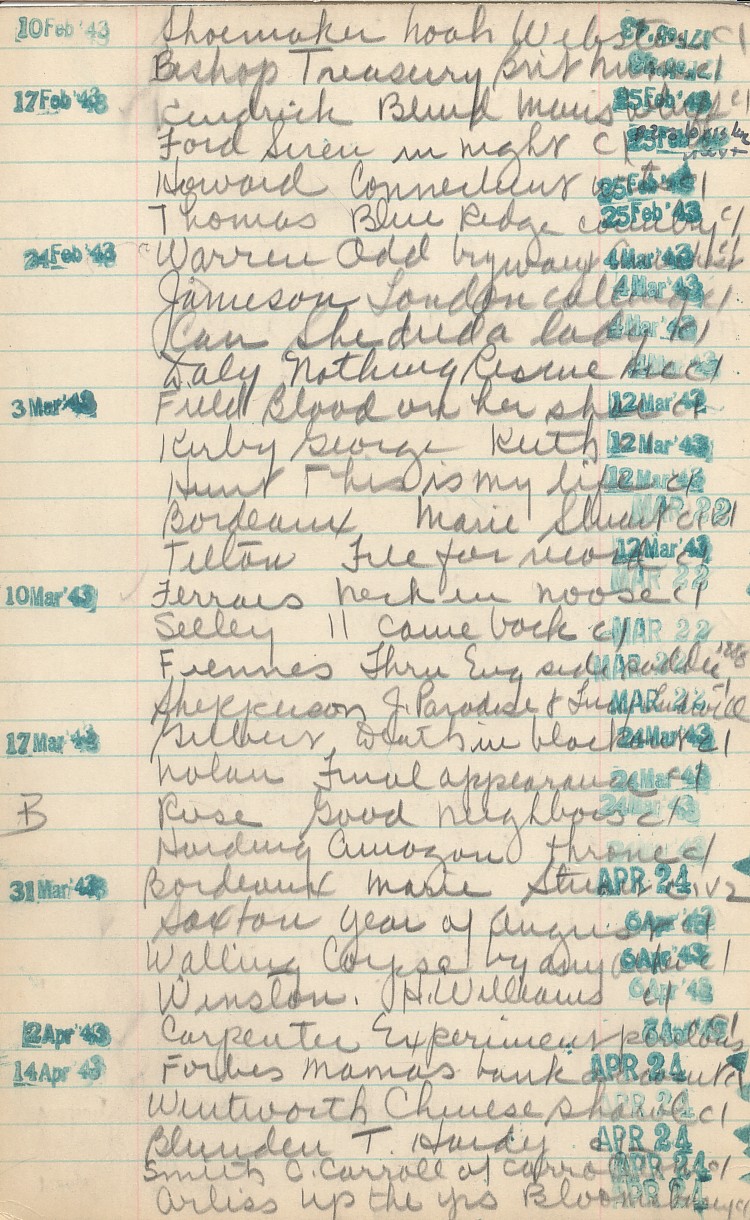 10 Feb '43 Shoemaker Noah Webster c1
Bishop Treasury Brit humor c1
17 Feb '43 Kendrick Blind mans c1 25 Feb '43
Ford Siren in night c1 25 Feb '43
Howard Connecticut c1 25 Feb '43
Thomas Blue Ridge country c1 25 Feb '43
24 Feb '43 Warren Odd byways c1 4 Mar '43
Jameson London calling c1 4 Mar '43
Carr She died a lady c1 4 Mar '43
Daly Nothing c1
3 Mar '43 Field Blood on her shoe c1 12 Mar '43
Kirby George Keith c1 12 Mar '43
Hunt This is my life c1 12 Mar '43
Bordeaux Marie Stuart c1 MAR 22
Tilton File for record c1 12 Mar '43
10 Mar '43 Ferrars Neck in noose c1 MAR 22
Seeley 11 came back c1 MAR 22
Fiennes Thru Eng side saddle MAR 22
J. Paradise & MAR 22
17 Mar '43 Gilbert Death in blackout c1 24 Mar '43
Nolan Final appearance c1 24 Mar '43
B Rose Good neighbors c1 24 Mar '43
Harding Amazon throne c1
31 Mar '43 Bordeaux Marie Stuart c1 v2 APR 24
Saxton Year of August c1 6 Apr '43
Walling Corpse by any other c1 6 Apr '43
Winston. H. Williams c1 6 Apr '43
2 Apr '43 Carpenter Experiment c1
14 Apr '43 Forbes Mamas bank account c1 APR 24
Wentworth Chinese shawl c1 APR 24
Blunden T. Hardy c1 APR 24
Smith C. Carroll of Carrollton c1 APR 24
Arliss Up the yrs Bloomsbury c1 APR 24